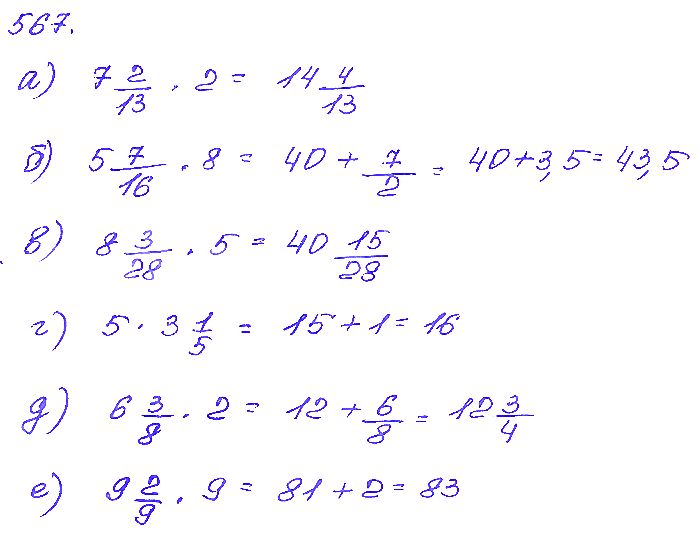 567.
а) 7 2/13 · 2 = 14 4/13
б) 5 7/16 · 8 = 40 + 7/2 = 40+3,5 = 43,5
в) 8 3/28 · 5 = 40 15/28
г) 5 · 3 1/5 = 15+1 = 16
д) 6 3/8 · 2 = 12 + 6/8 = 12 3/4
е) 9 2/9 · 9 = 81+2 = 83